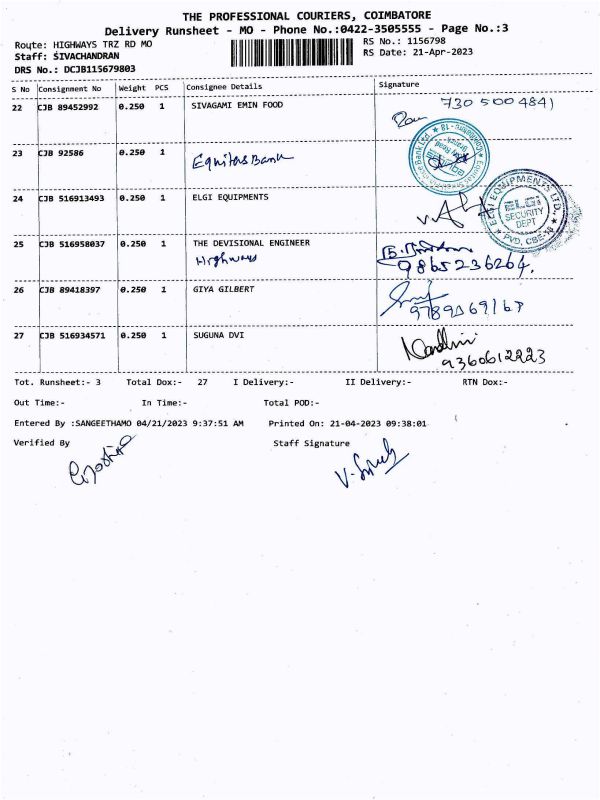 THE PROFESSIONAL COURIERS, COIMBATORE
Delivery Runsheet - MO - Phone No.:0422-3505555 - Page No.:3
Route: HIGHWAYS TRZ RD MO RS No.: 1156798
Staff: SIVACHANDRAN RS Date: 21-Apr-2023
DRS No.: DCJB115679803
S No Consignment No Weight PCS Consignee Details Signature
22 CJB 89452992 0.250 1 SIVAGAMI EMIN FOOD 730 500 4841
23 CJB 92586 0.250 1 Equitas Bank
24 CJB 516913493 0.250 1 ELGI EQUIPMENTS
ELGI EQUIPMENTS LTD.,
ELGI
SECURITY
DEPT
PVD, CBE-
25 CJB 516958037 0.250 1 THE DEVISIONAL ENGINEER
Highways 9865236264.
26 CJB 89418397 0.250 1 GIYA GILBERT
27 CJB 516934571 0.250 1 SUGUNA DVI Nandhini
9360612223
Tot. Runsheet:- 3 Total Dox:- 27 I Delivery:- II Delivery:- RTN Dox:-
Out Time:- In Time:- Total POD:-
Entered By :SANGEETHAMO 04/21/2023 9:37:51 AM Printed On: 21-04-2023 09:38:01
Verified By Staff Signature